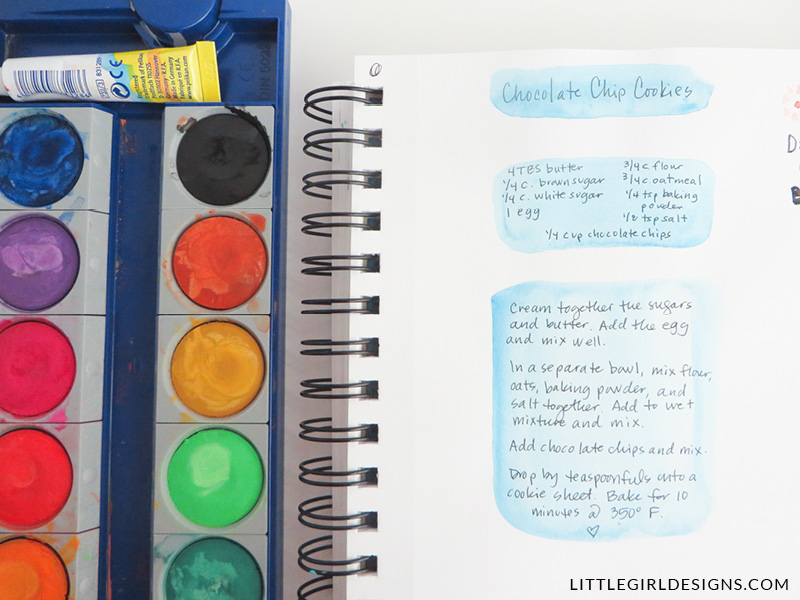 Chocolate Chip Cookies
4 TBS butter
1/4 c. brown sugar
1/4 c. white sugar
1 egg
3/4 c flour
3/4 c oatmeal
1/4 tsp baking
powder
1/8 tsp salt
1/4 cup chocolate chips
Cream together the sugars
and butter. Add the egg
and mix well.
In a separate bowl, mix flour,
oats, baking powder, and
salt together. Add to wet
mixture and mix.
Add chocolate chips and mix.
Drop by teaspoonfuls onto a
cookie sheet. Bake for 10
minutes @ 350° F.
LITTLEGIRLDESIGNS.COM